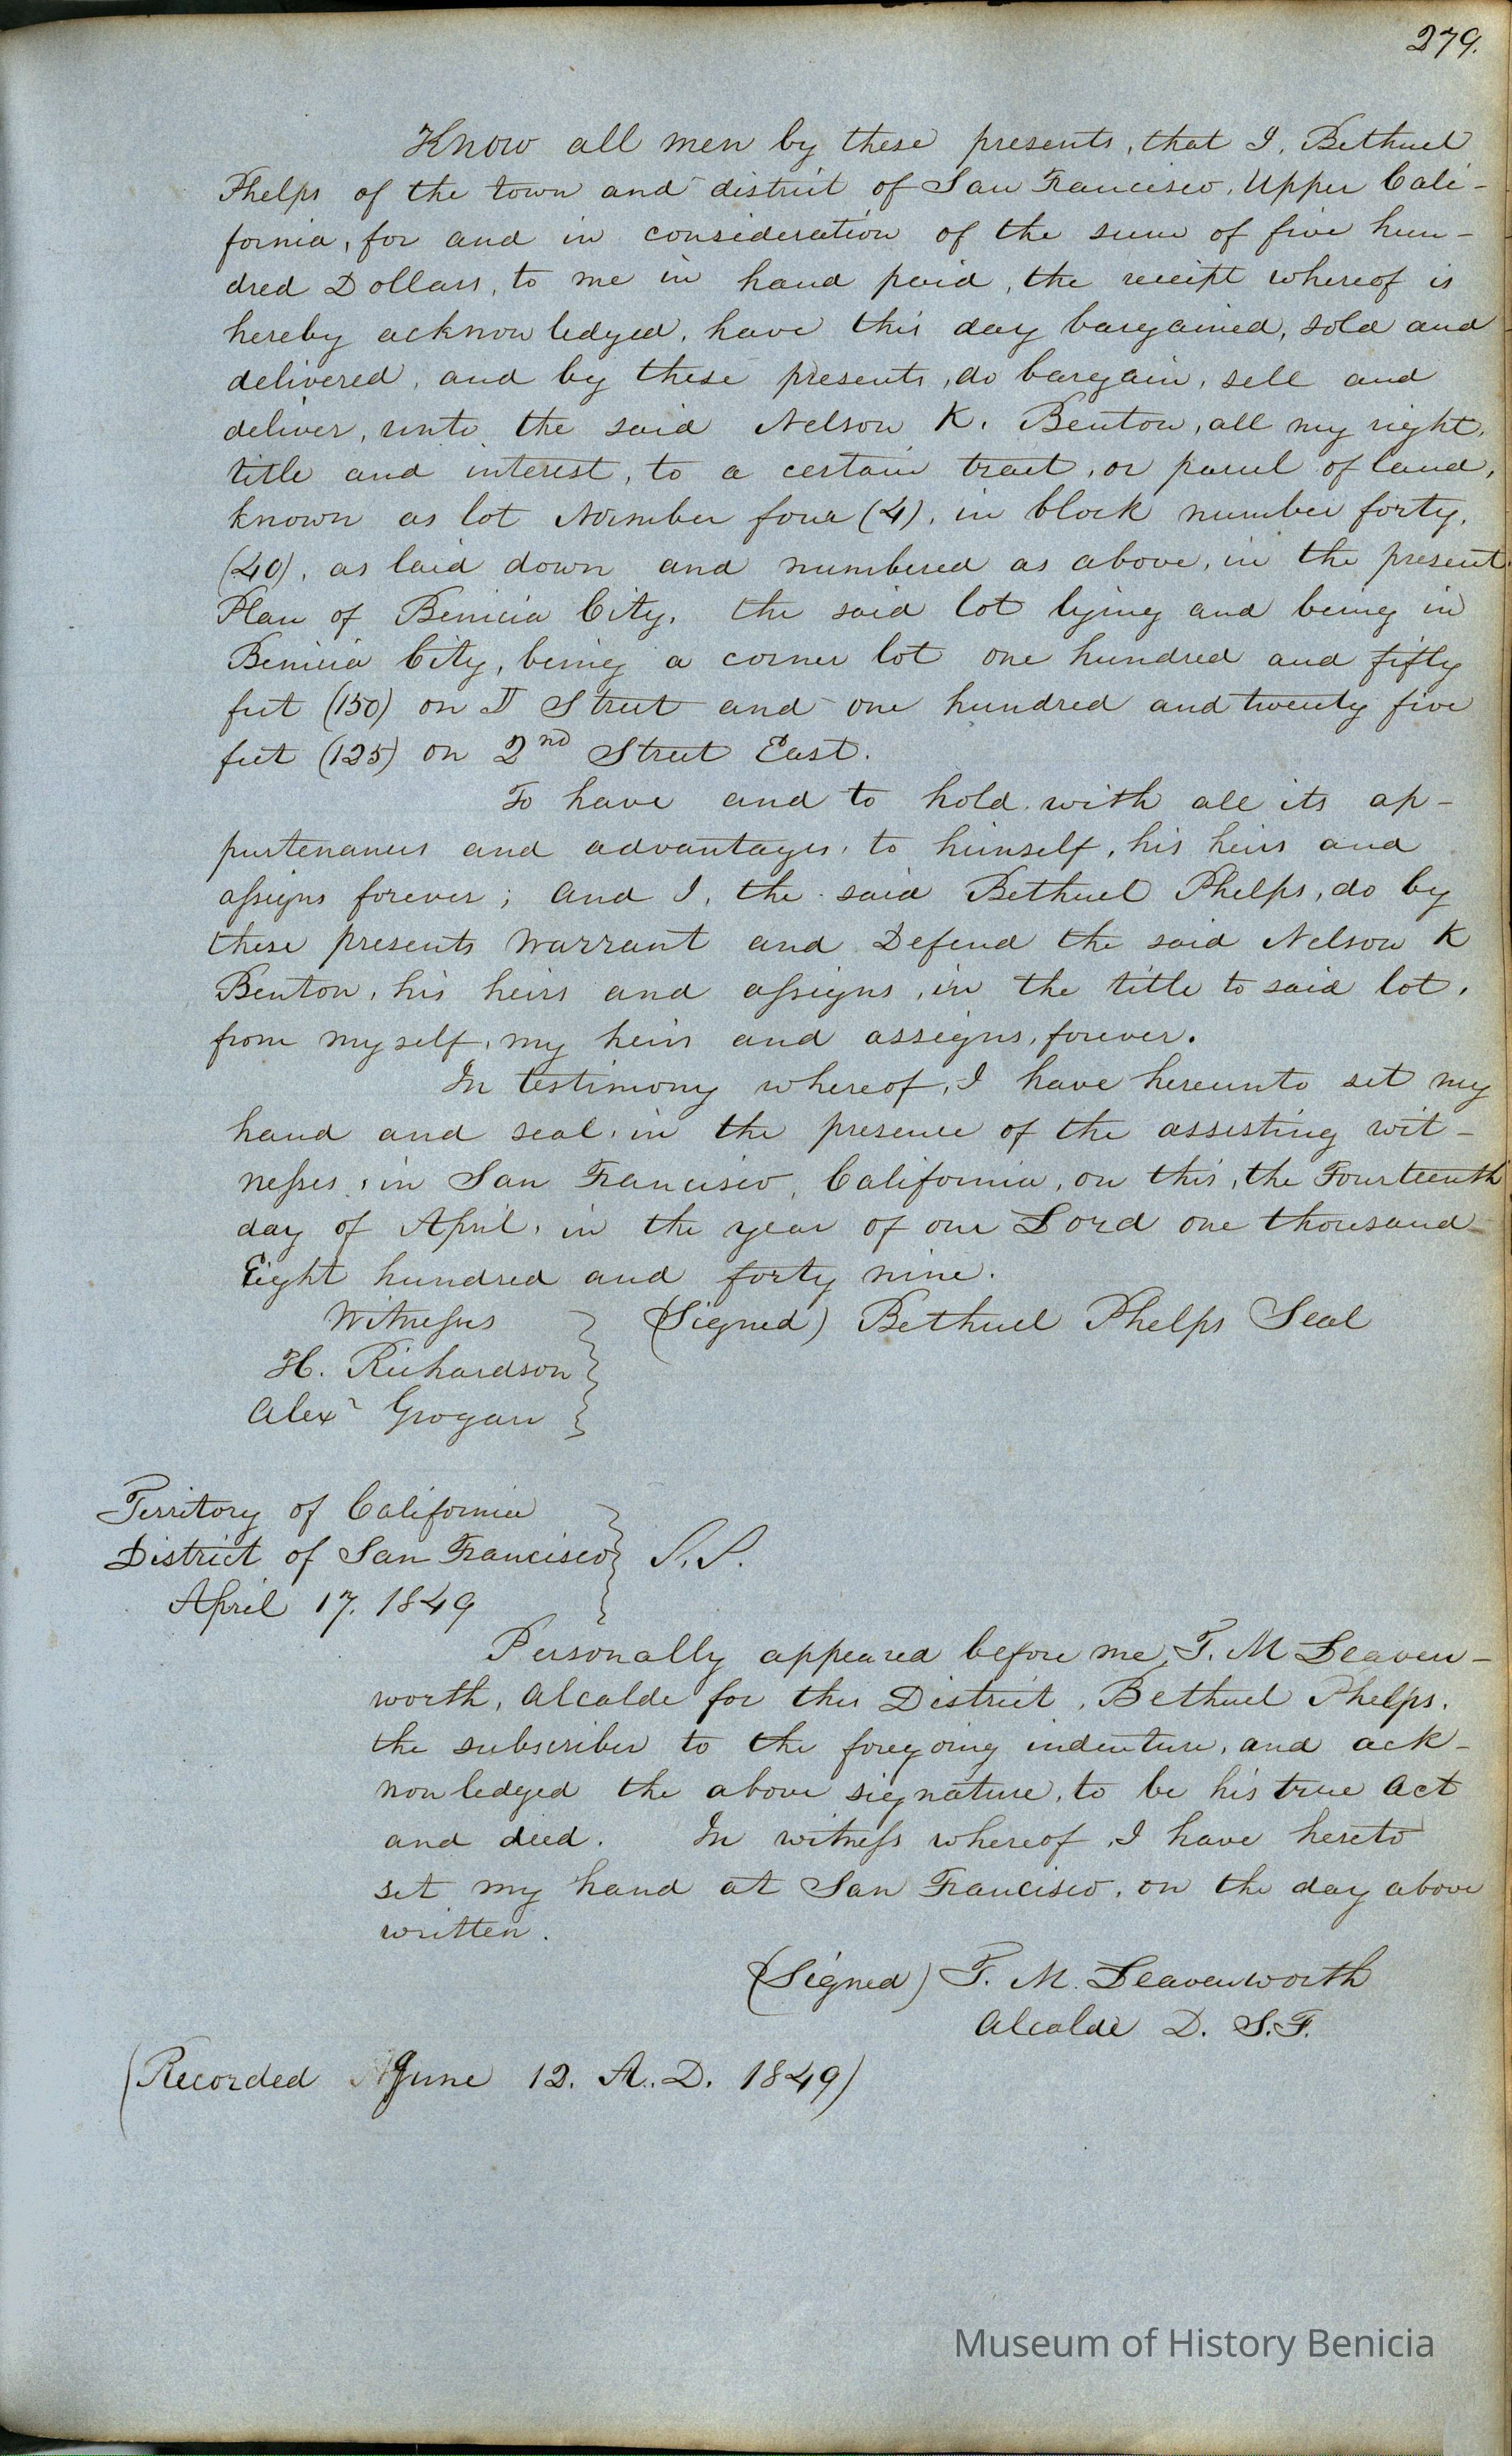 279.
Know all men by these presents, that I, Bethuel
Phelps of the town and district of San Francisco, Upper Cali-
fornia, for and in consideration of the sum of five hun-
dred Dollars, to me in hand paid, the receipt whereof is
hereby acknowledged, have this day bargained, sold and
delivered, and by these presents, do bargain, sell and
deliver, unto the said Nelson K. Benton, all my right,
title and interest, to a certain tract, or parcel of land,
known as lot Number four (4), in block number forty,
(40), as laid down and numbered as above, in the present
Plan of Benicia City, the said lot lying and being in
Benicia City, being a corner lot one hundred and fifty
feet (150) on Street and one hundred and twenty five
feet (125) on 2nd Street East.
To have and to hold with all its ap-
purtenances and advantages, to himself, his heirs and
assigns forever; and I, the said Bethuel Phelps, do by
these presents Warrant and Defend the said Nelson K
Benton, his heirs and assigns, in the title to said lot,
from myself, my heirs and assigns, forever.
In testimony whereof, I have hereunto set my
hand and seal, in the presence of the assisting wit-
nesses, in San Francisco, California, on this, the Fourteenth
day of April, in the year of our Lord one thousand
Eight hundred and forty nine.
Witnesses (Signed) Bethuel Phelps Seal
H. Richardson
Alexr Grogan
Territory of California
District of San Francisco S.S.
April 17. 1849
Personally appeared before me, T. M Leaven-
worth, Alcalde for this District, Bethuel Phelps,
the subscriber to the foregoing indenture, and ack-
nowledged the above signature, to be his true Act
and deed. In witness whereof, I have hereto
set my hand at San Francisco, on the day above
written.
(Signed) T. M. Leavenworth
Alcalde D. S. F.
(Recorded June 12. A. D. 1849)
Museum of History Benicia